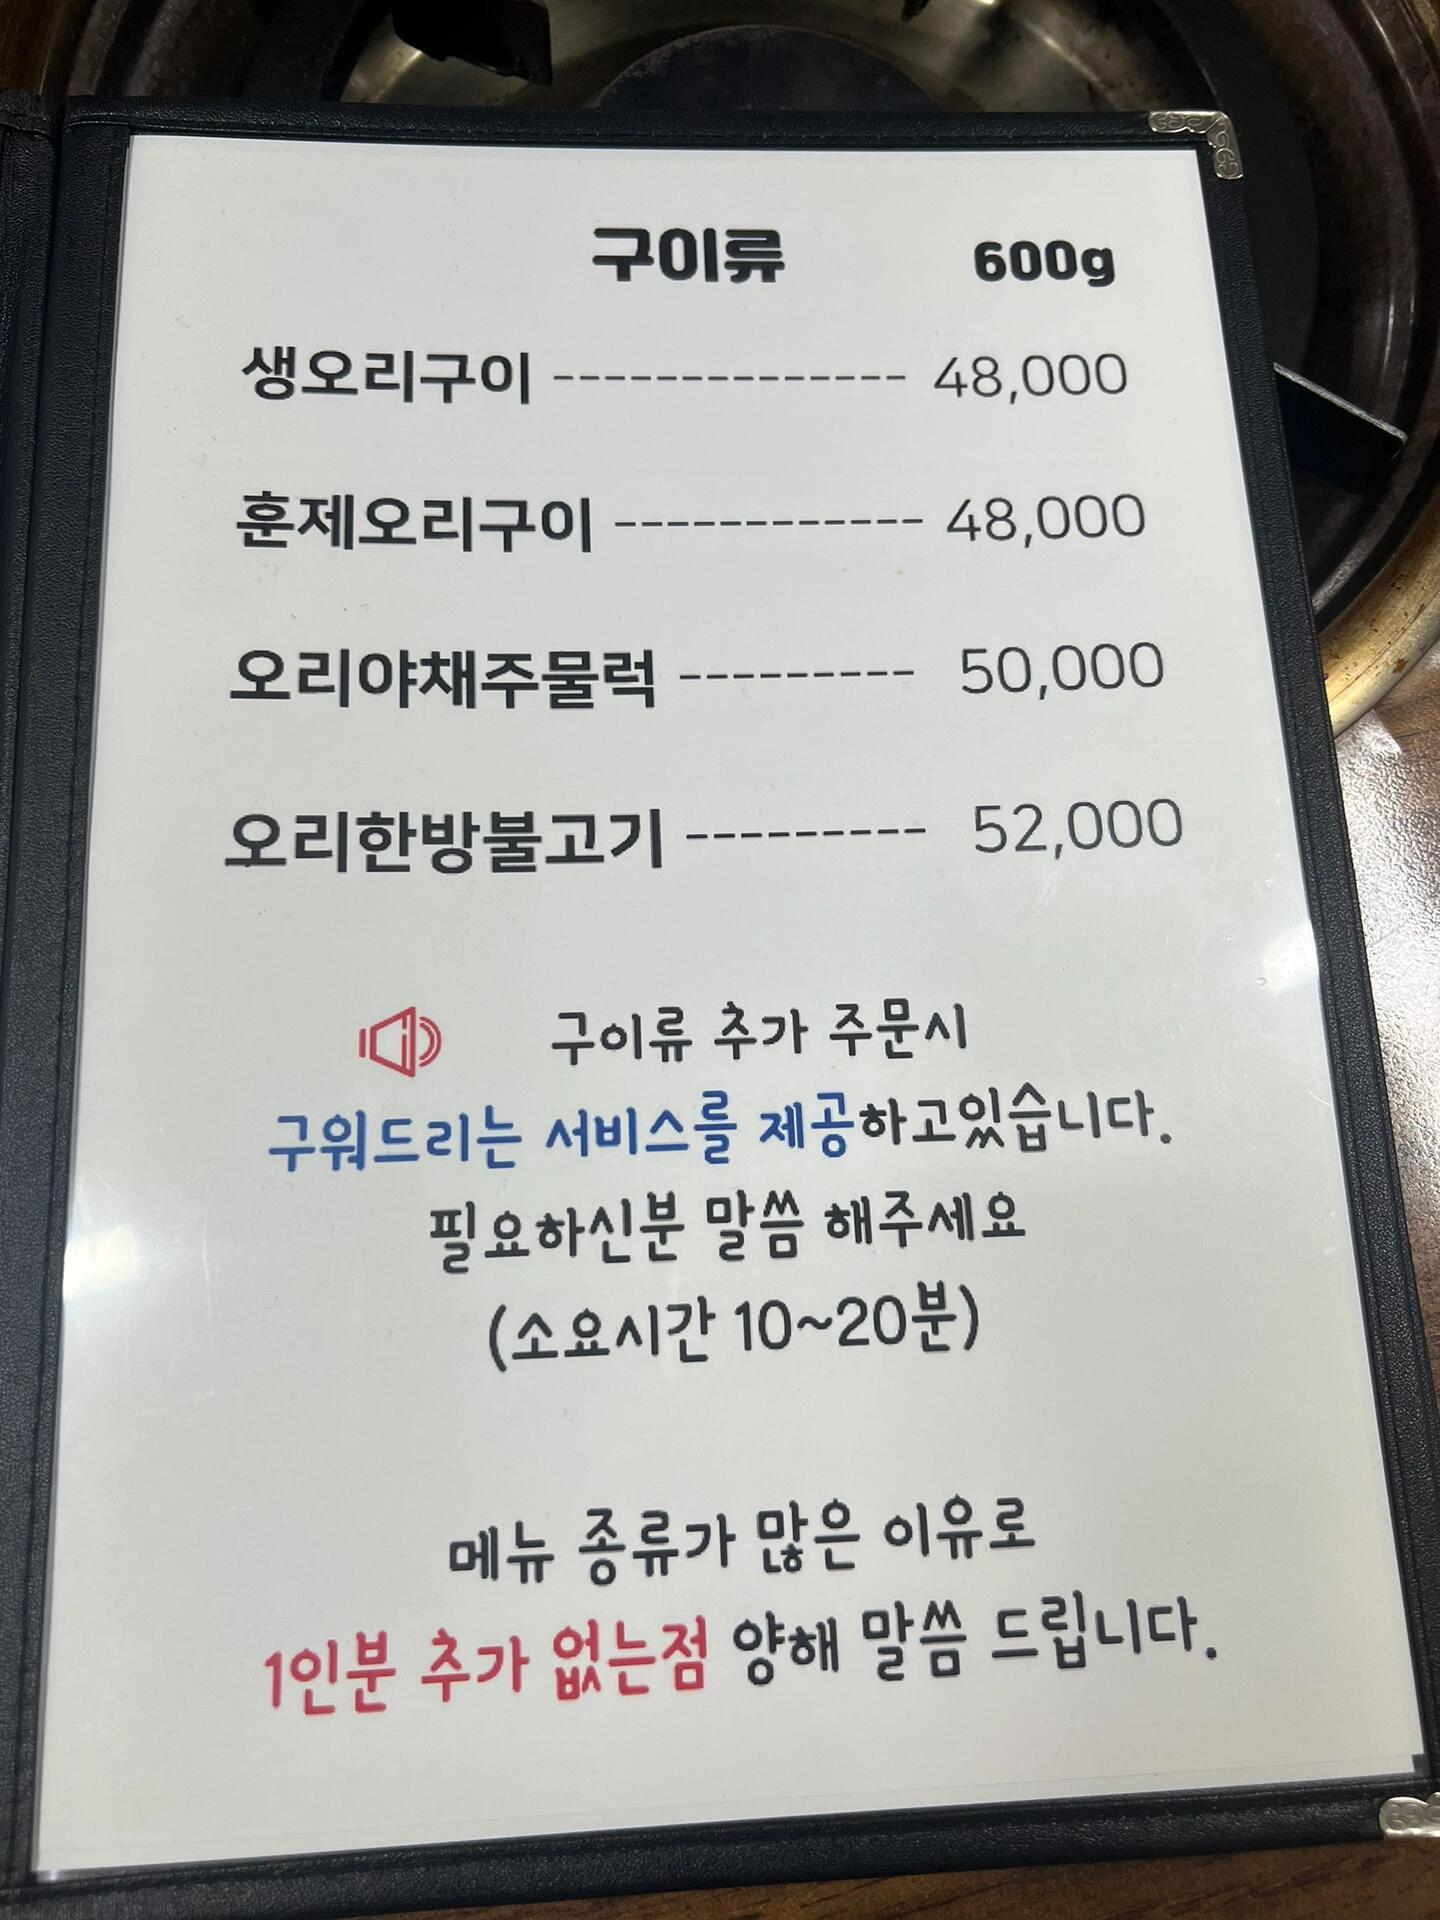 구이류 600g
생오리구이 -------------- 48,000
훈제오리구이 ------------ 48,000
오리야채주물럭 --------- 50,000
오리한방불고기 --------- 52,000
구이류 추가 주문시
구워드리는 서비스를 제공하고있습니다.
필요하신분 말씀 해주세요
(소요시간 10~20분)
메뉴 종류가 많은 이유로
1인분 추가 없는점 양해 말씀 드립니다.